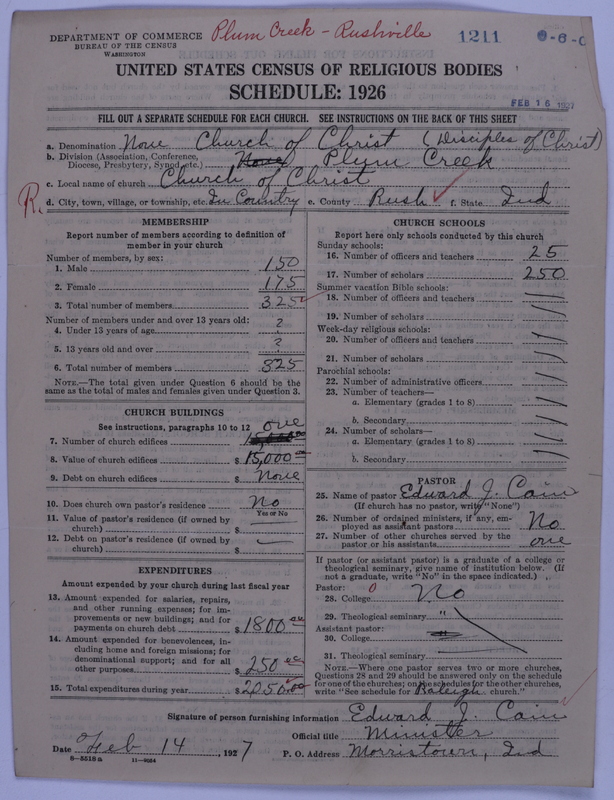 DEPARTMENT OF COMMERCE
BUREAU OF THE CENSUS
WASHINGTON
Plum Creek - Rushville
1211
UNITED STATES CENSUS OF RELIGIOUS BODIES
SCHEDULE: 1926
FEB 16 1927
FILL OUT A SEPARATE SCHEDULE FOR EACH CHURCH. SEE INSTRUCTIONS ON THE BACK OF THIS SHEET
a. Denomination None Church of Christ (Disciples of Christ)
b. Division (Association, Conference, Diocese, Presbytery, Synod, etc.) None Plum Creek
c. Local name of church Church of Christ
R. d. City, town, village, or township, etc. In Country e. County Rush f. State Ind
MEMBERSHIP
Report number of members according to definition of
member in your church
Number of members, by sex:
1. Male 150
2. Female 175
3. Total number of members 325
Number of members under and over 13 years old:
4. Under 13 years of age ?
5. 13 years old and over ?
6. Total number of members 325
NOTE.—The total given under Question 6 should be the
same as the total of males and females given under Question 3.
CHURCH BUILDINGS
See instructions, paragraphs 10 to 12
7. Number of church edifices one
8. Value of church edifices $ 15,000 00
9. Debt on church edifices $ None
10. Does church own pastor's residence No
Yes or No
11. Value of pastor's residence (if owned by
church) $
12. Debt on pastor's residence (if owned by
church) $
EXPENDITURES
Amount expended by your church during last fiscal year
13. Amount expended for salaries, repairs,
and other running expenses; for im-
provements or new buildings; and for
payments on church debt $ 1800.00
14. Amount expended for benevolences, in-
cluding home and foreign missions; for
denominational support; and for all
other purposes $ 250 00
15. Total expenditures during year $ 2050.00
CHURCH SCHOOLS
Report here only schools conducted by this church
Sunday schools:
16. Number of officers and teachers 25
17. Number of scholars 250
Summer vacation Bible schools:
18. Number of officers and teachers
19. Number of scholars
Week-day religious schools:
20. Number of officers and teachers
21. Number of scholars
Parochial schools:
22. Number of administrative officers
23. Number of teachers—
a. Elementary (grades 1 to 8)
b. Secondary
24. Number of scholars—
a. Elementary (grades 1 to 8)
b. Secondary
PASTOR
25. Name of pastor Edward J. Cain
(If church has no pastor, write "None")
26. Number of ordained ministers, if any, em-
ployed as assistant pastors No
27. Number of other churches served by the
pastor or his assistants one
If pastor (or assistant pastor) is a graduate of a college or
theological seminary, give name of institution below. (If
not a graduate, write "No" in the space indicated.)
Pastor: 0
28. College No
29. Theological seminary "
Assistant pastor:
30. College
31. Theological seminary
NOTE.—Where one pastor serves two or more churches,
Questions 28 and 29 should be answered only on the schedule
for one of the churches; on the schedules for the other churches,
write "See schedule for Raleigh church."
Signature of person furnishing information Edward J. Cain
Official title Minister
Date Feb 14, 1927
P. O. Address Morristown, Ind
8-5518 a 11-9064